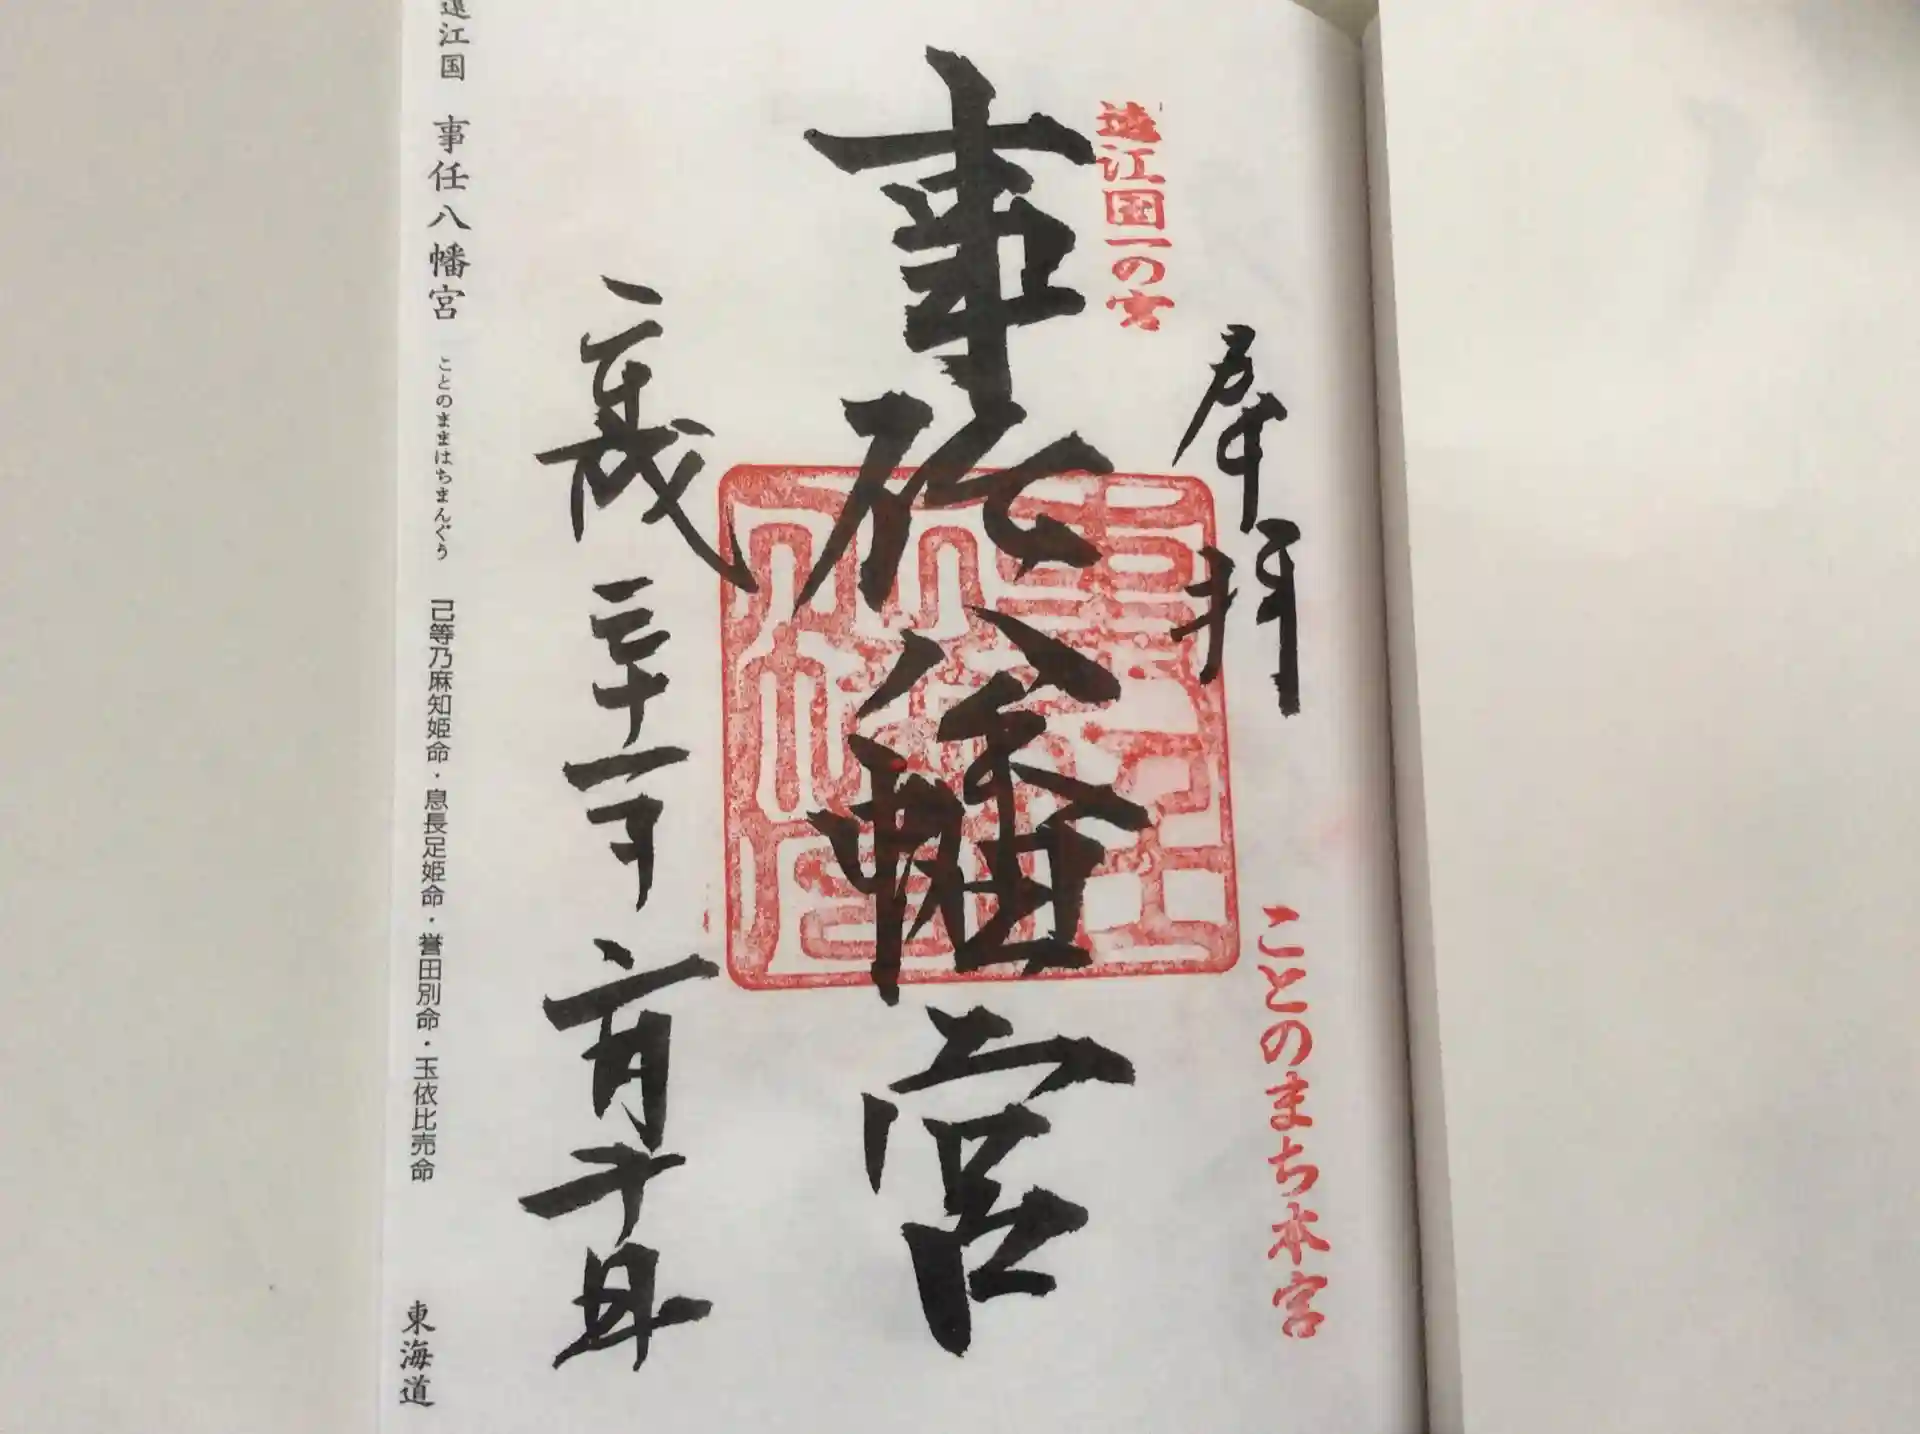 ことのまち本宮
奉拝
遠江国一の宮
事任八幡宮
平成
遠江国 事任八幡宮 ことのままはちまんぐう 己等乃麻知姫命・息長足姫命・誉田別命・玉依比売命 東海道